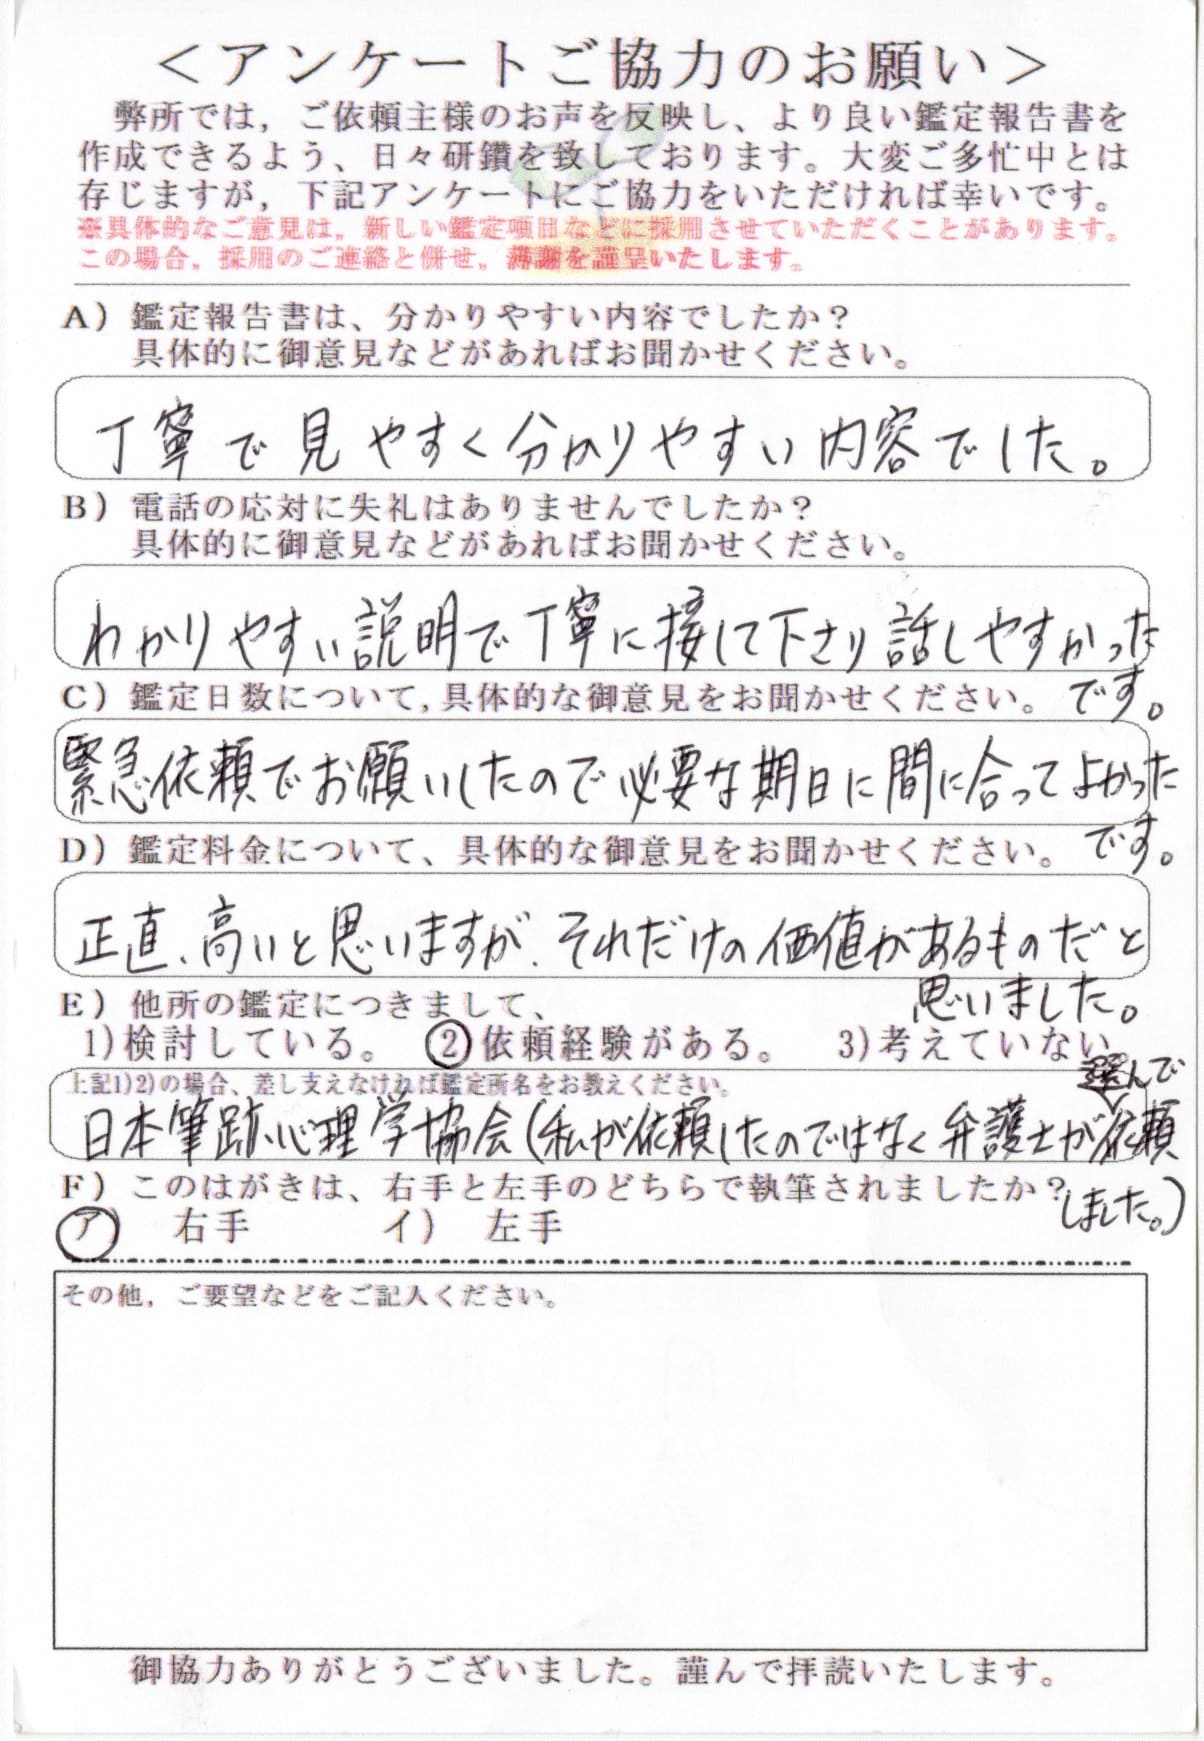 ＜アンケートご協力のお願い＞
弊所では，ご依頼主様のお声を反映し、より良い鑑定報告書を
作成できるよう、日々研鑽を致しております。大変ご多忙中とは
存じますが，下記アンケートにご協力をいただければ幸いです。
※具体的なご意見は，新しい鑑定項目などに採用させていただくことがあります。
この場合，採用のご連絡と併せ，薄謝を謹呈いたします。
A）鑑定報告書は、分かりやすい内容でしたか？
具体的に御意見などがあればお聞かせください。
丁寧で見やすく分かりやすい内容でした。
B）電話の応対に失礼はありませんでしたか？
具体的に御意見などがあればお聞かせください。
わかりやすい説明で丁寧に接して下さり話しやすかった
です。
C）鑑定日数について,具体的な御意見をお聞かせください。
緊急依頼でお願いしたので必要な期日に間に合ってよかった
です。
D）鑑定料金について、具体的な御意見をお聞かせください。
正直、高いと思いますが、それだけの価値があるものだと
思いました。
E）他所の鑑定につきまして、
1)検討している。 2)依頼経験がある。 3)考えていない
上記1)2)の場合、差し支えなければ鑑定所名をお教えください。
選んで
日本筆跡心理学協会(私が依頼したのではなく弁護士が依頼
しました。)
F）このはがきは、右手と左手のどちらで執筆されましたか？
ア） 右手 イ） 左手
その他，ご要望などをご記入ください。
御協力ありがとうございました。謹んで拝読いたします。